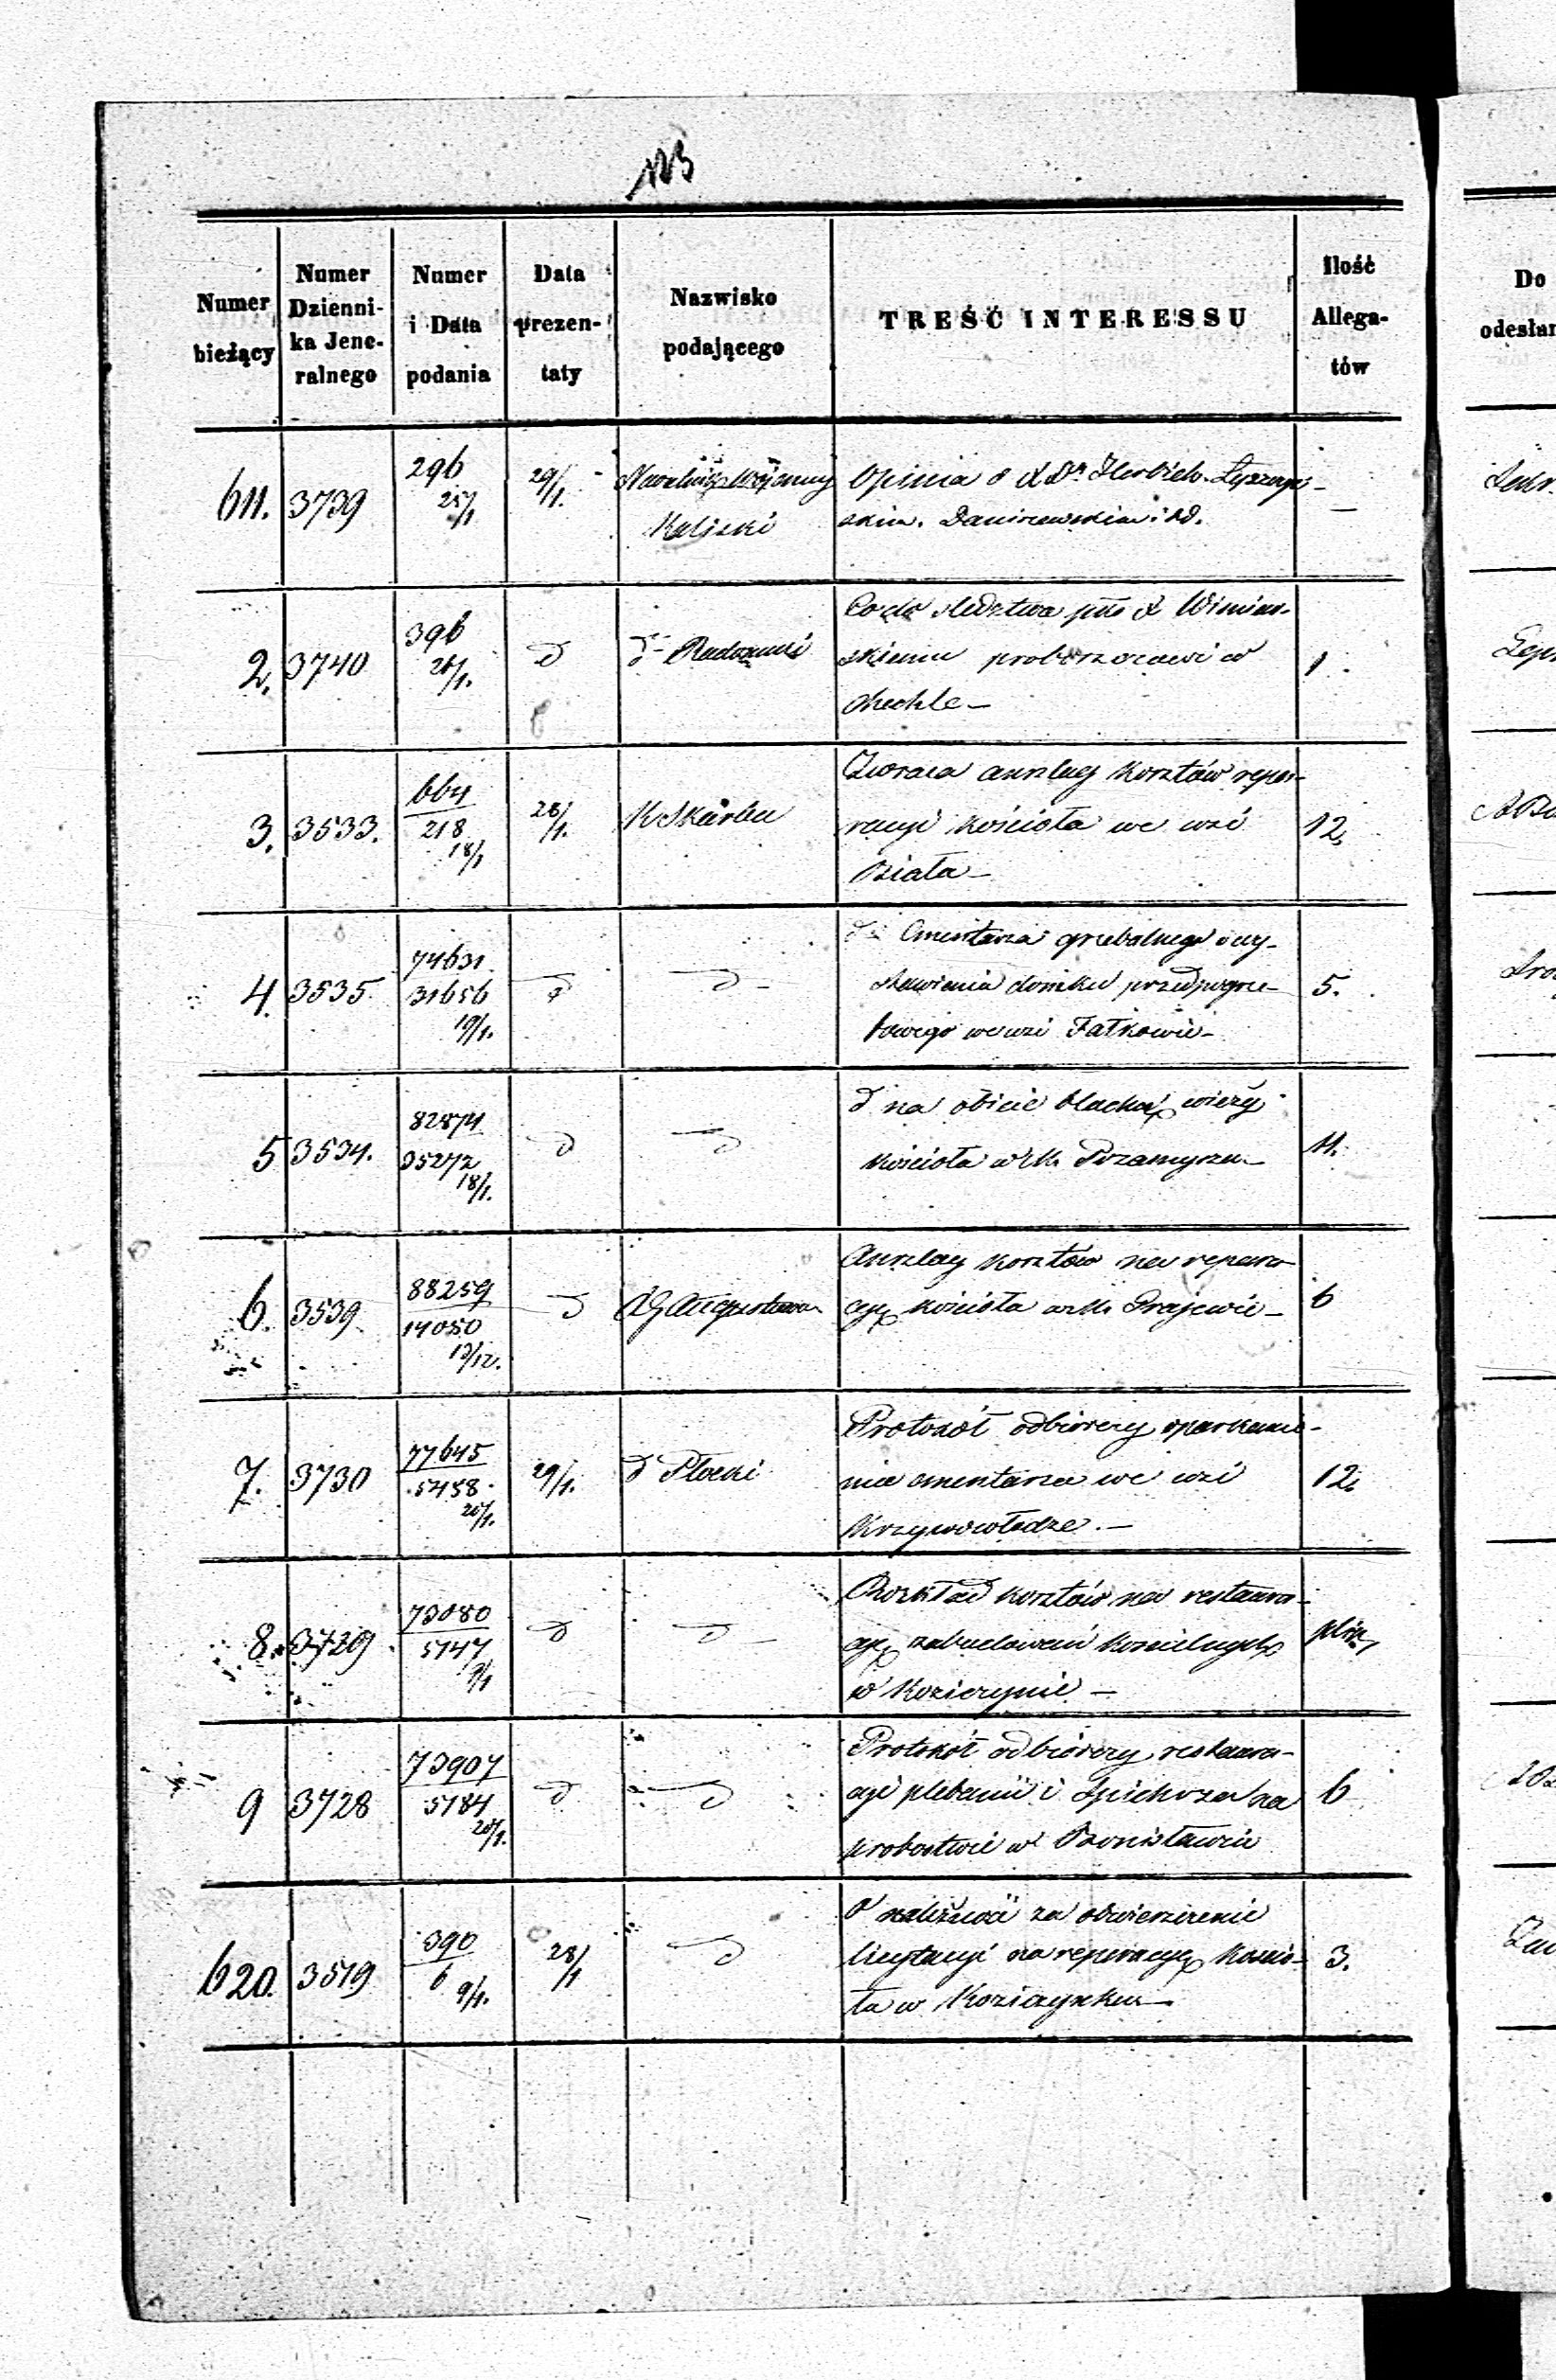 123
Numer bieżący
Numer Dzienni-ka Jene-ralnego
Numer i Data podania
Data prezen-taty
Nazwisko podającego
TREŚĆ INTERESSU
Ilość Allega-tów
Do odesłan
611. 3739 296 25/1 29/1. Naczelnik Wojenny Kaliski
Opinia o X Dr Herbich. Łyszczyń-
skim. Daniszewskim i td. —
2. 3740 396 26/1. d d Radomski
Co do śledztwa pko X
skiemu proboszczowi w 1
Chechle —
3. 3533. 664 218 18/1 28/1. K Skarbu
Zwraca anszlag kosztów repa-
racyi kościoła we wsi 12.
Biała —
4. 3535. 74631 31656 19/1. d d
d Cmentarza grzebalnego i wy-
stawienia domku przedpogrze- 5.
bowego we wsi Fałkowie —
5 3534. 82874 35272 18/1. d d
d na obicie blachą wieży
kościoła w M. Przasnyszu — 11.
6. 3539. 88259 14050 13/12. d RG Augustowski
Anszlag kosztów na repara-
cyę kościoła w M. Grajewie — 6
7. 3730 77645 5458 20/1. 29/1. d Płocki
Protokół odbiorczy oparkanie-
nia cmentarza we wsi 12.
Krzywowłodze. —
8. 3729 73080 5147 9/1 d d
Rozkład kosztów na restaura-
cyę zabudowań kościelnych plik
w Koziczynie —
9 3728 73907 5184 20/1. d d
Protokół odbiorczy restaura-
cyi plebanii i Spichrza na 6
probostwie w Bronisławiu
620. 3519 390 6 9/1. 28/1 d
O należność za obwieszczenie
licytacyi na reperacyę kościo- 3.
ła w Koziczynku —